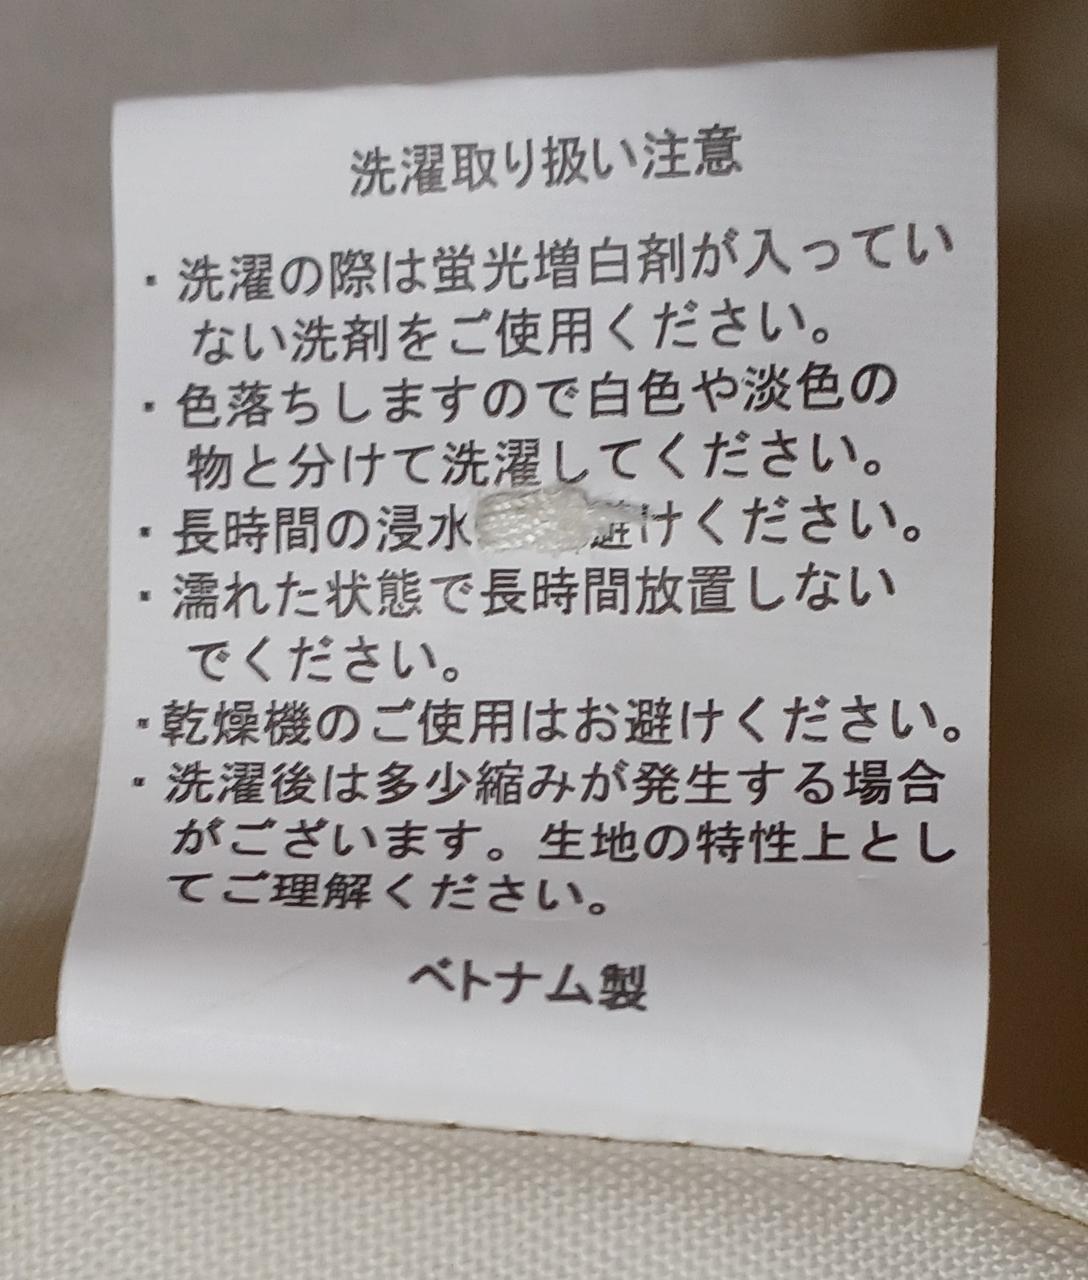 洗濯取り扱い注意
・洗濯の際は蛍光増白剤が入ってい
ない洗剤をご使用ください。
・色落ちしますので白色や淡色の
物と分けて洗濯してください。
・長時間の浸水 避けください。
・濡れた状態で長時間放置しない
でください。
・乾燥機のご使用はお避けください。
・洗濯後は多少縮みが発生する場合
がございます。生地の特性上とし
てご理解ください。
ベトナム製